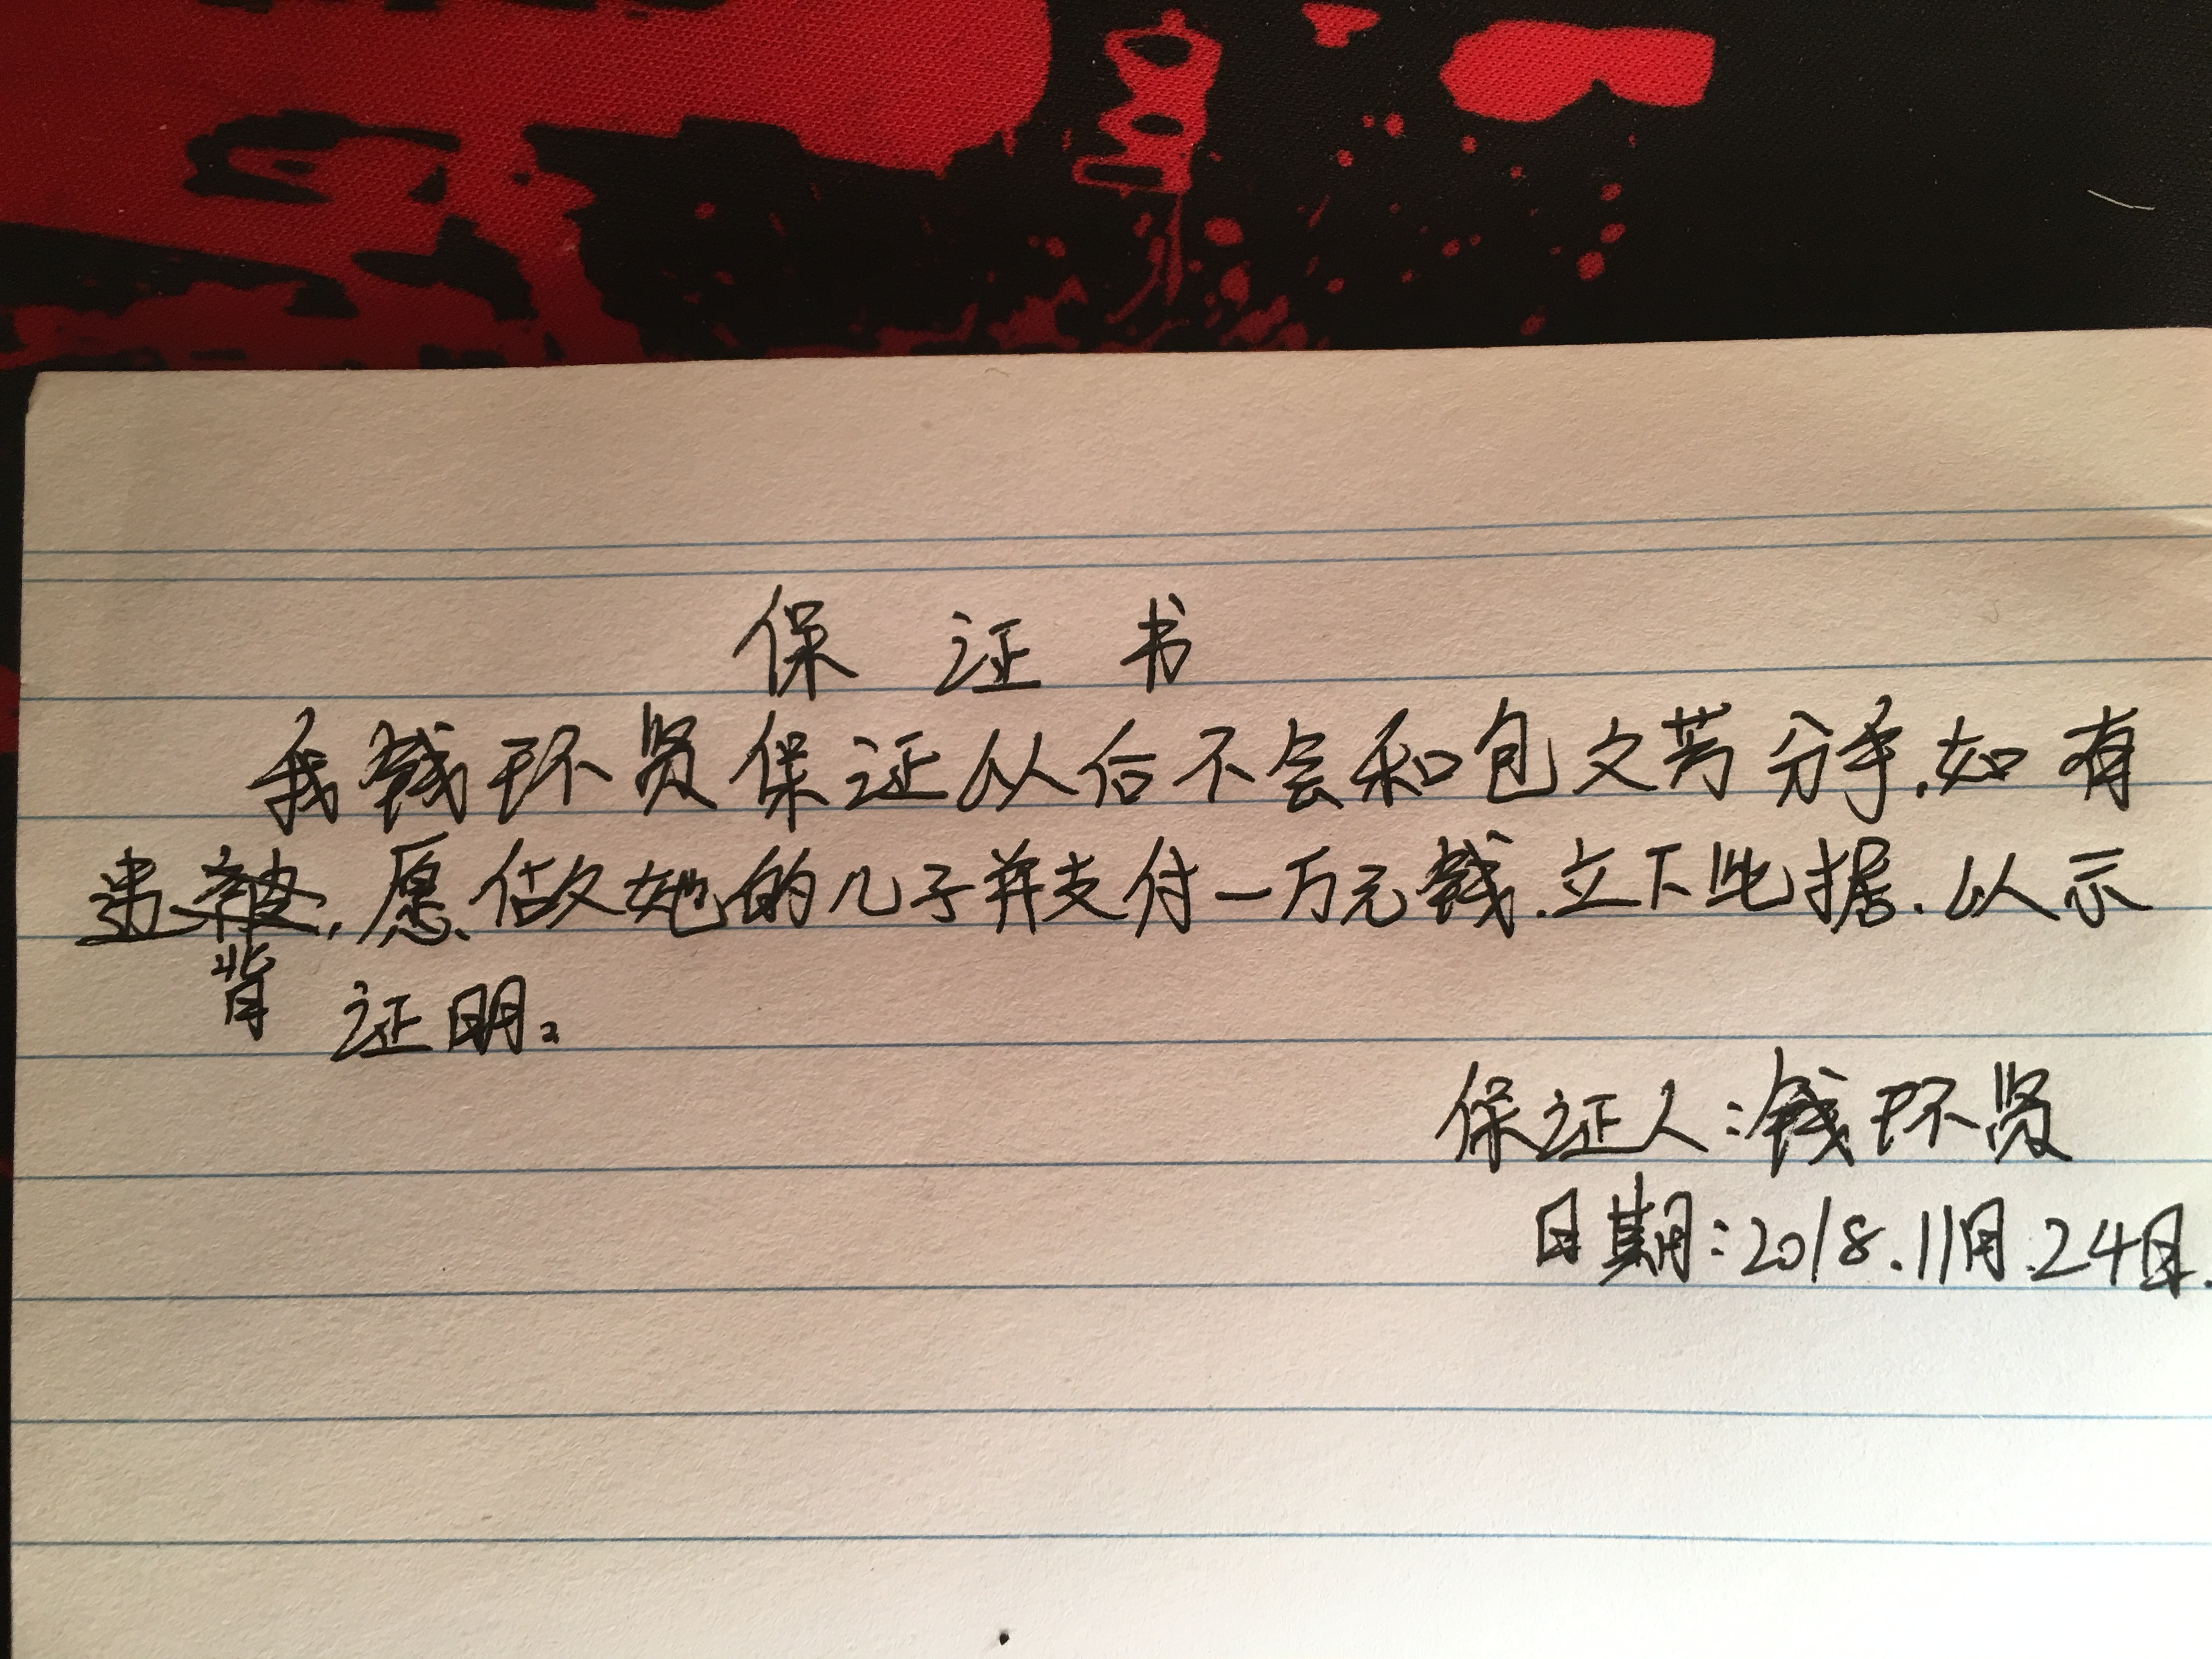 保 证 书
我钱环贤保证以后不会和包文芳分手.如有
违背,愿做她的儿子并支付一万元钱.立下此据.以示
证明。
保证人:钱环贤
日期:2018.11月24日.